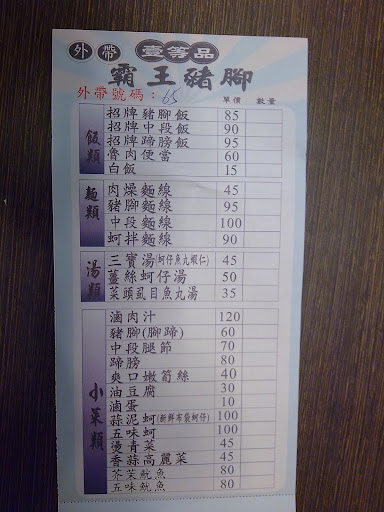 外帶 壹等品
霸王豬腳
外帶號碼：65 單價 數量
飯類
招牌豬腳飯 85
招牌中段飯 90
招牌蹄膀飯 95
魯肉便當 60
白飯 15
麵類
肉燥麵線 45
豬腳麵線 95
中段麵線 100
蚵拌麵線 90
湯類
三寶湯(蚵仔魚丸蝦仁) 45
薑絲蚵仔湯 50
菜頭虱目魚丸湯 35
小菜類
滷肉汁 120
豬腳(腳蹄) 60
中段腿節 70
蹄膀 80
爽口嫩筍絲 40
油豆腐 30
滷蛋 10
蒜泥蚵(新鮮布袋蚵仔) 100
五味蚵 100
燙青菜 45
香蒜高麗菜 45
芥茉魷魚 80
五味魷魚 80